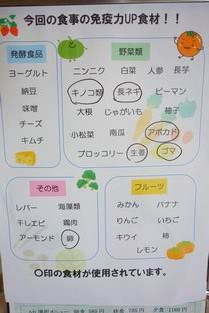 今回の食事の免疫力UP食材！！
発酵食品
ヨーグルト
納豆
味噌
チーズ
キムチ
野菜類
ニンニク 白菜 人参 長芋
キノコ類 長ネギ ピーマン
大根 じゃがいも 柚子
小松菜 南瓜 アボカド
ブロッコリー 生姜 ゴマ
その他
レバー 海藻類
干しエビ 鶏肉
アーモンド 卵
フルーツ
みかん バナナ
りんご いちご
キウイ 柿
レモン
〇印の食材が使用されています。